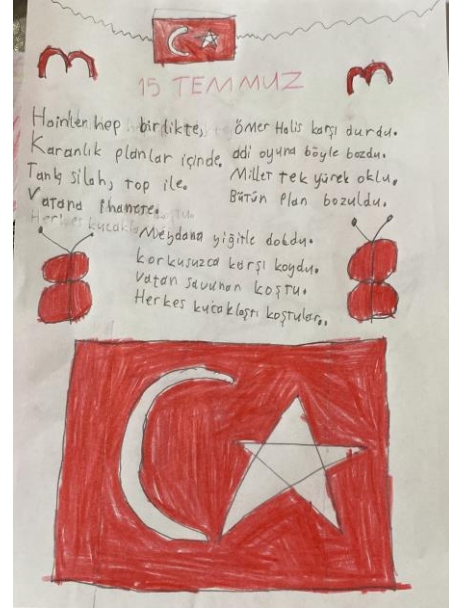 15 TEMMUZ
Hainler hep birlikte,
Karanlık planlar içinde,
Tank, silah, top ile.
Vatana ihanete.
Ömer Halis karşı durdu.
adi oyunu böyle bozdu.
Millet tek yürek oldu,
Bütün Plan bozuldu.
Meydana yiğitle doldu.
korkusuzca karşı koydu.
vatan savunan koştu.
Herkes kucaklaştı koştular..